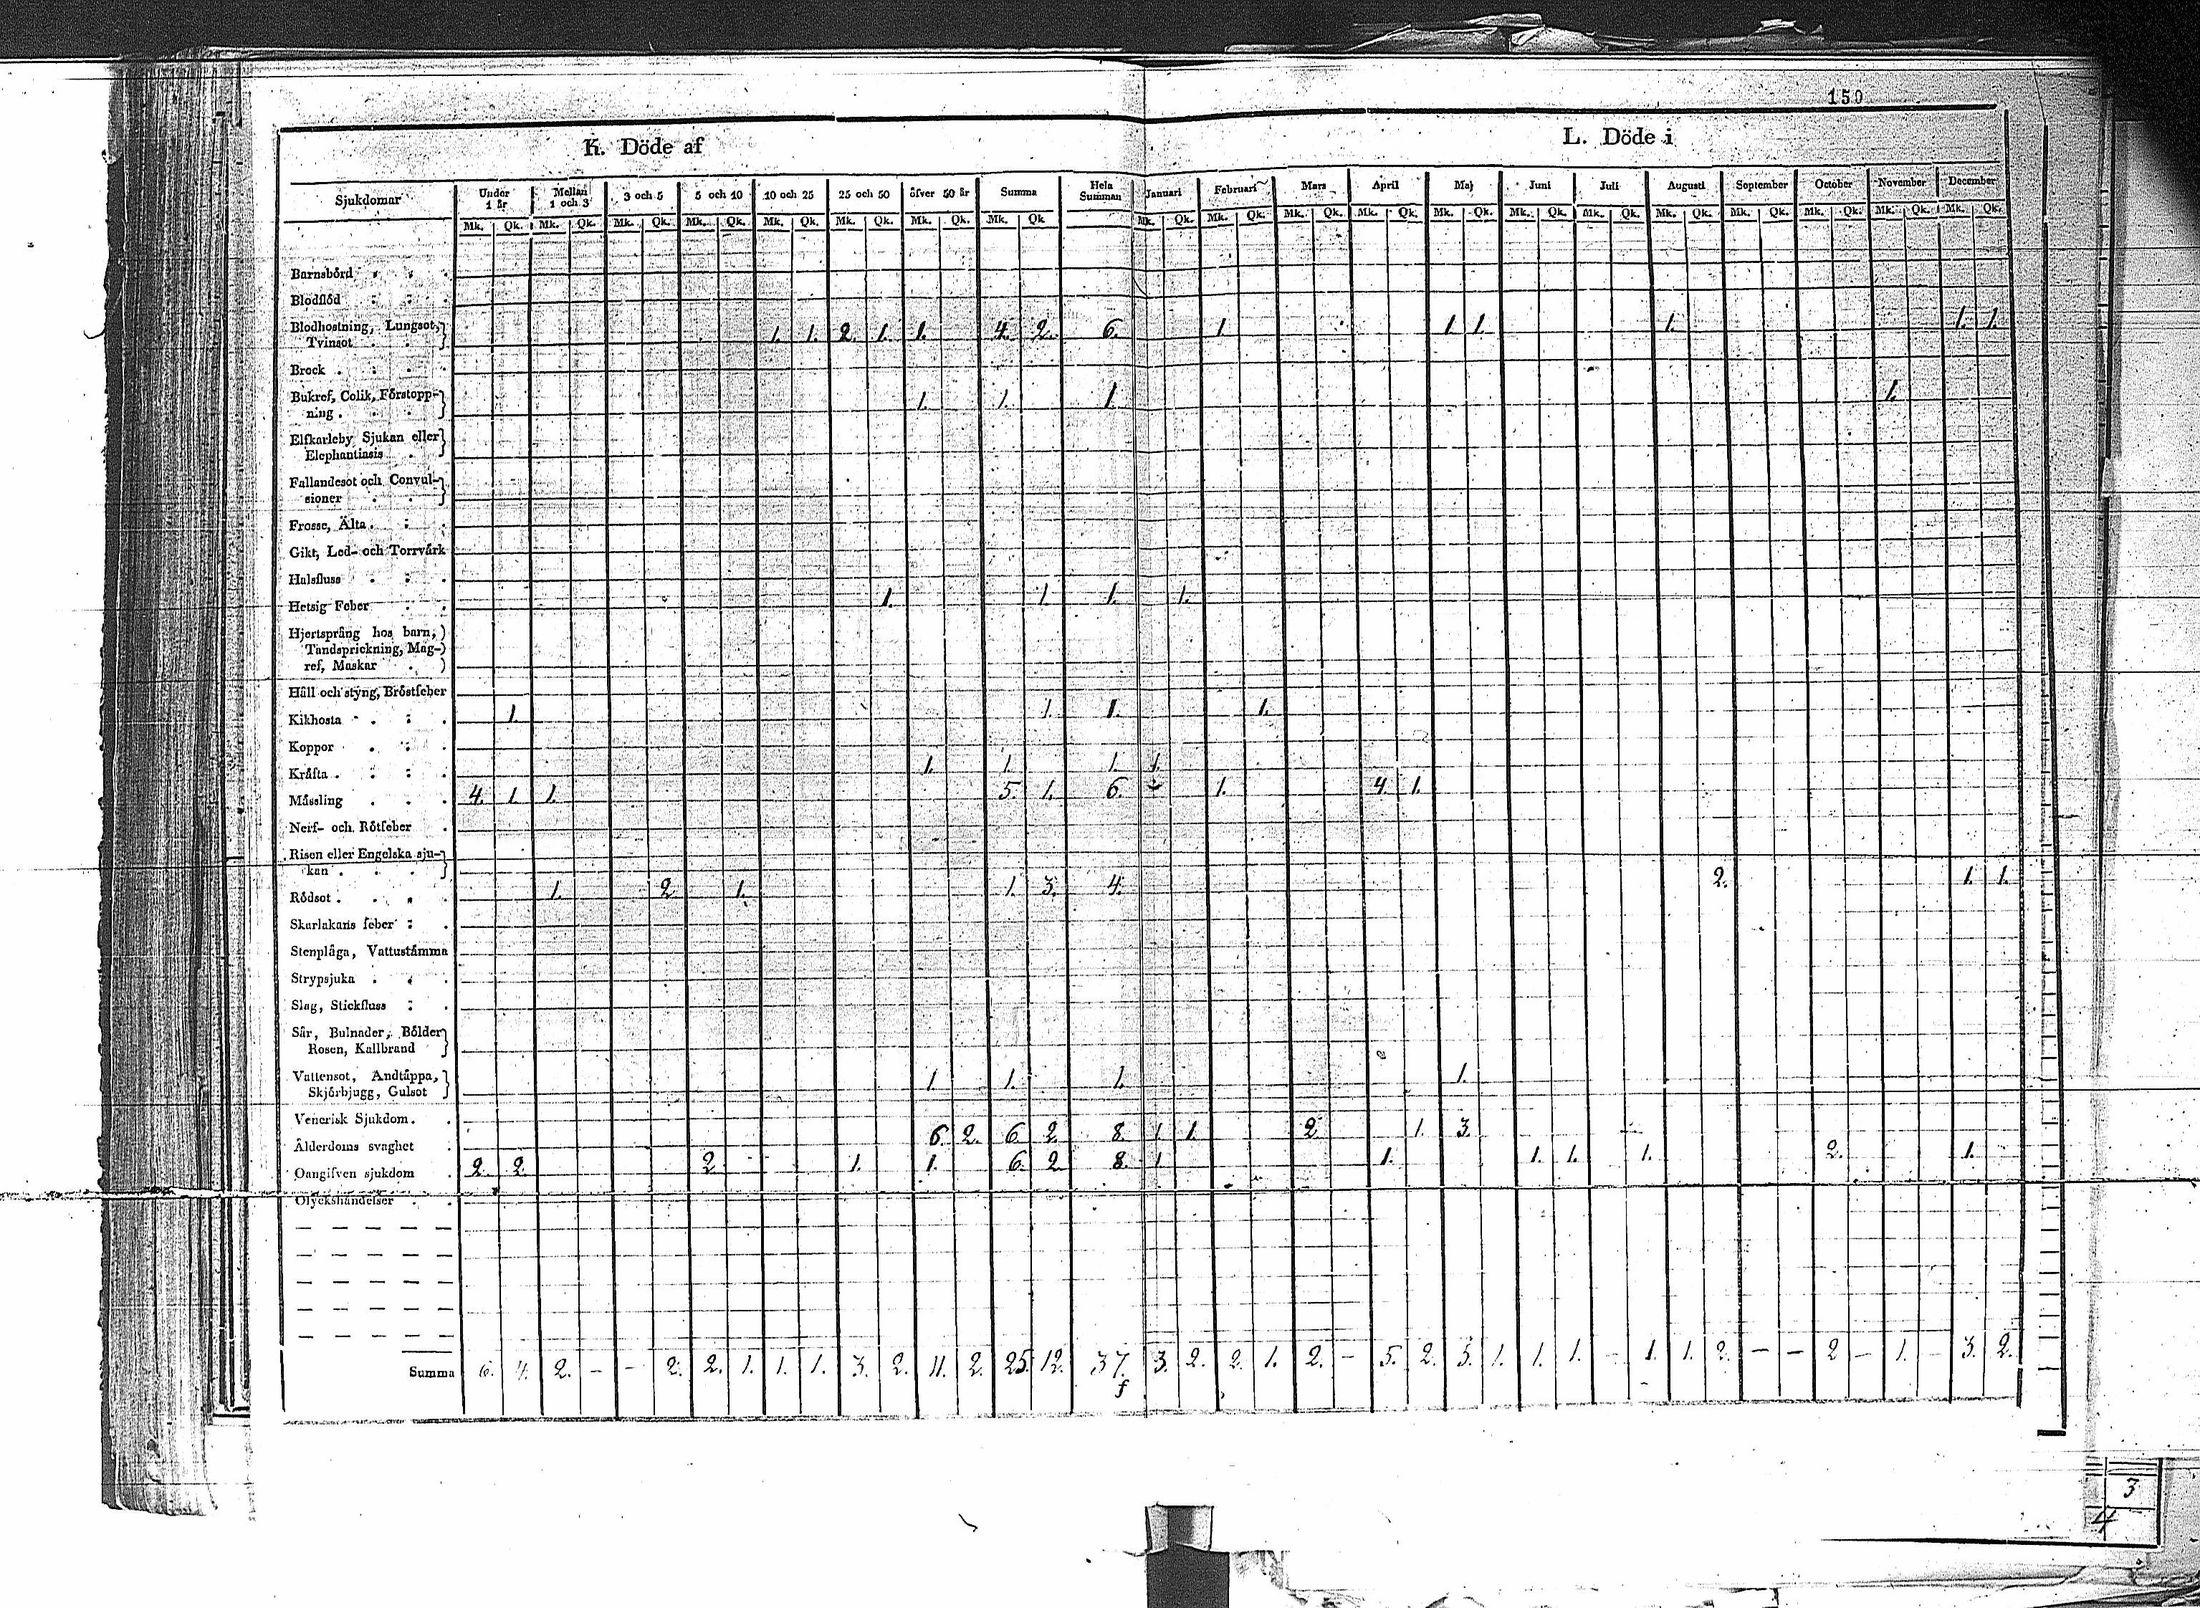 150
K. Döde af
L. Döde i
Sjukdomar Under 1 år Mellan 1 och 3 3 och 5 5 och 10 10 och 25 25 och 50 öfver 50 år Summa Hela Summan Januari Februari Mars April Maj Juni Juli Augusti September October November December
Mk. Qk. Mk. Qk. Mk. Qk. Mk. Qk. Mk. Qk. Mk. Qk. Mk. Qk. Mk. Qk. Mk. Qk. Mk. Qk. Mk. Qk. Mk. Qk. Mk. Qk. Mk. Qk. Mk. Qk. Mk. Qk. Mk. Qk. Mk. Qk. Mk. Qk. Mk. Qk.
Barnsbörd
Blodflöd
Blodhostning, Lungsot,
Tvinsot 1. 1. 2. 1. 1. 4. 2. 6. 1. 1. 1. 1. 1. 1.
Brock
Bukref, Colik, Förstopp-
ning 1. 1. 1. 1.
Elfkarleby Sjukan eller
Elephantiasis
Fallandesot och Convul-
sioner
Frosse, Älta
Gikt, Led- och Torrvärk
Halsfluss
Hetsig Feber 1. 1. 1. 1.
Hjertsprång hos barn,
Tandsprickning, Mag-
ref, Maskar
Håll och styng, Bröstfeber
Kikhosta 1. 1. 1. 1.
Koppor
Kräfta 1. 1. 1. 1.
Mässling 4. 1. 1. 5. 1. 6. 1. 4. 1.
Nerf- och Rötfeber
Risen eller Engelska sju-
kan
Rödsot 1. 2 1. 1. 3. 4. 2. 1. 1.
Skarlakans feber
Stenplåga, Vattustämma
Strypsjuka
Slag, Stickfluss
Sår, Bulnader, Bölder
Rosen, Kallbrand
Vattensot, Andtäppa,
Skjörbjugg, Gulsot 1. 1. 1. 1.
Venerisk Sjukdom
Ålderdoms svaghet 6. 2. 6. 2. 8. 1. 1. 2 1. 3.
Oangifven sjukdom 2. 2. 2 1. 1. 6. 2. 8. 1. 1. 1. 1. 1. 2. 1.
Olyckshändelser
Summa 6. 4. 2. – – 2. 2. 1. 1. 1. 3. 2. 11. 2. 25. 12. 37. 3. 2. 2. 1. 2. – 5. 2. 5. 1. 1. 1. – 1. 1. 2. – – 2 – 1. – 3. 2.
3
4